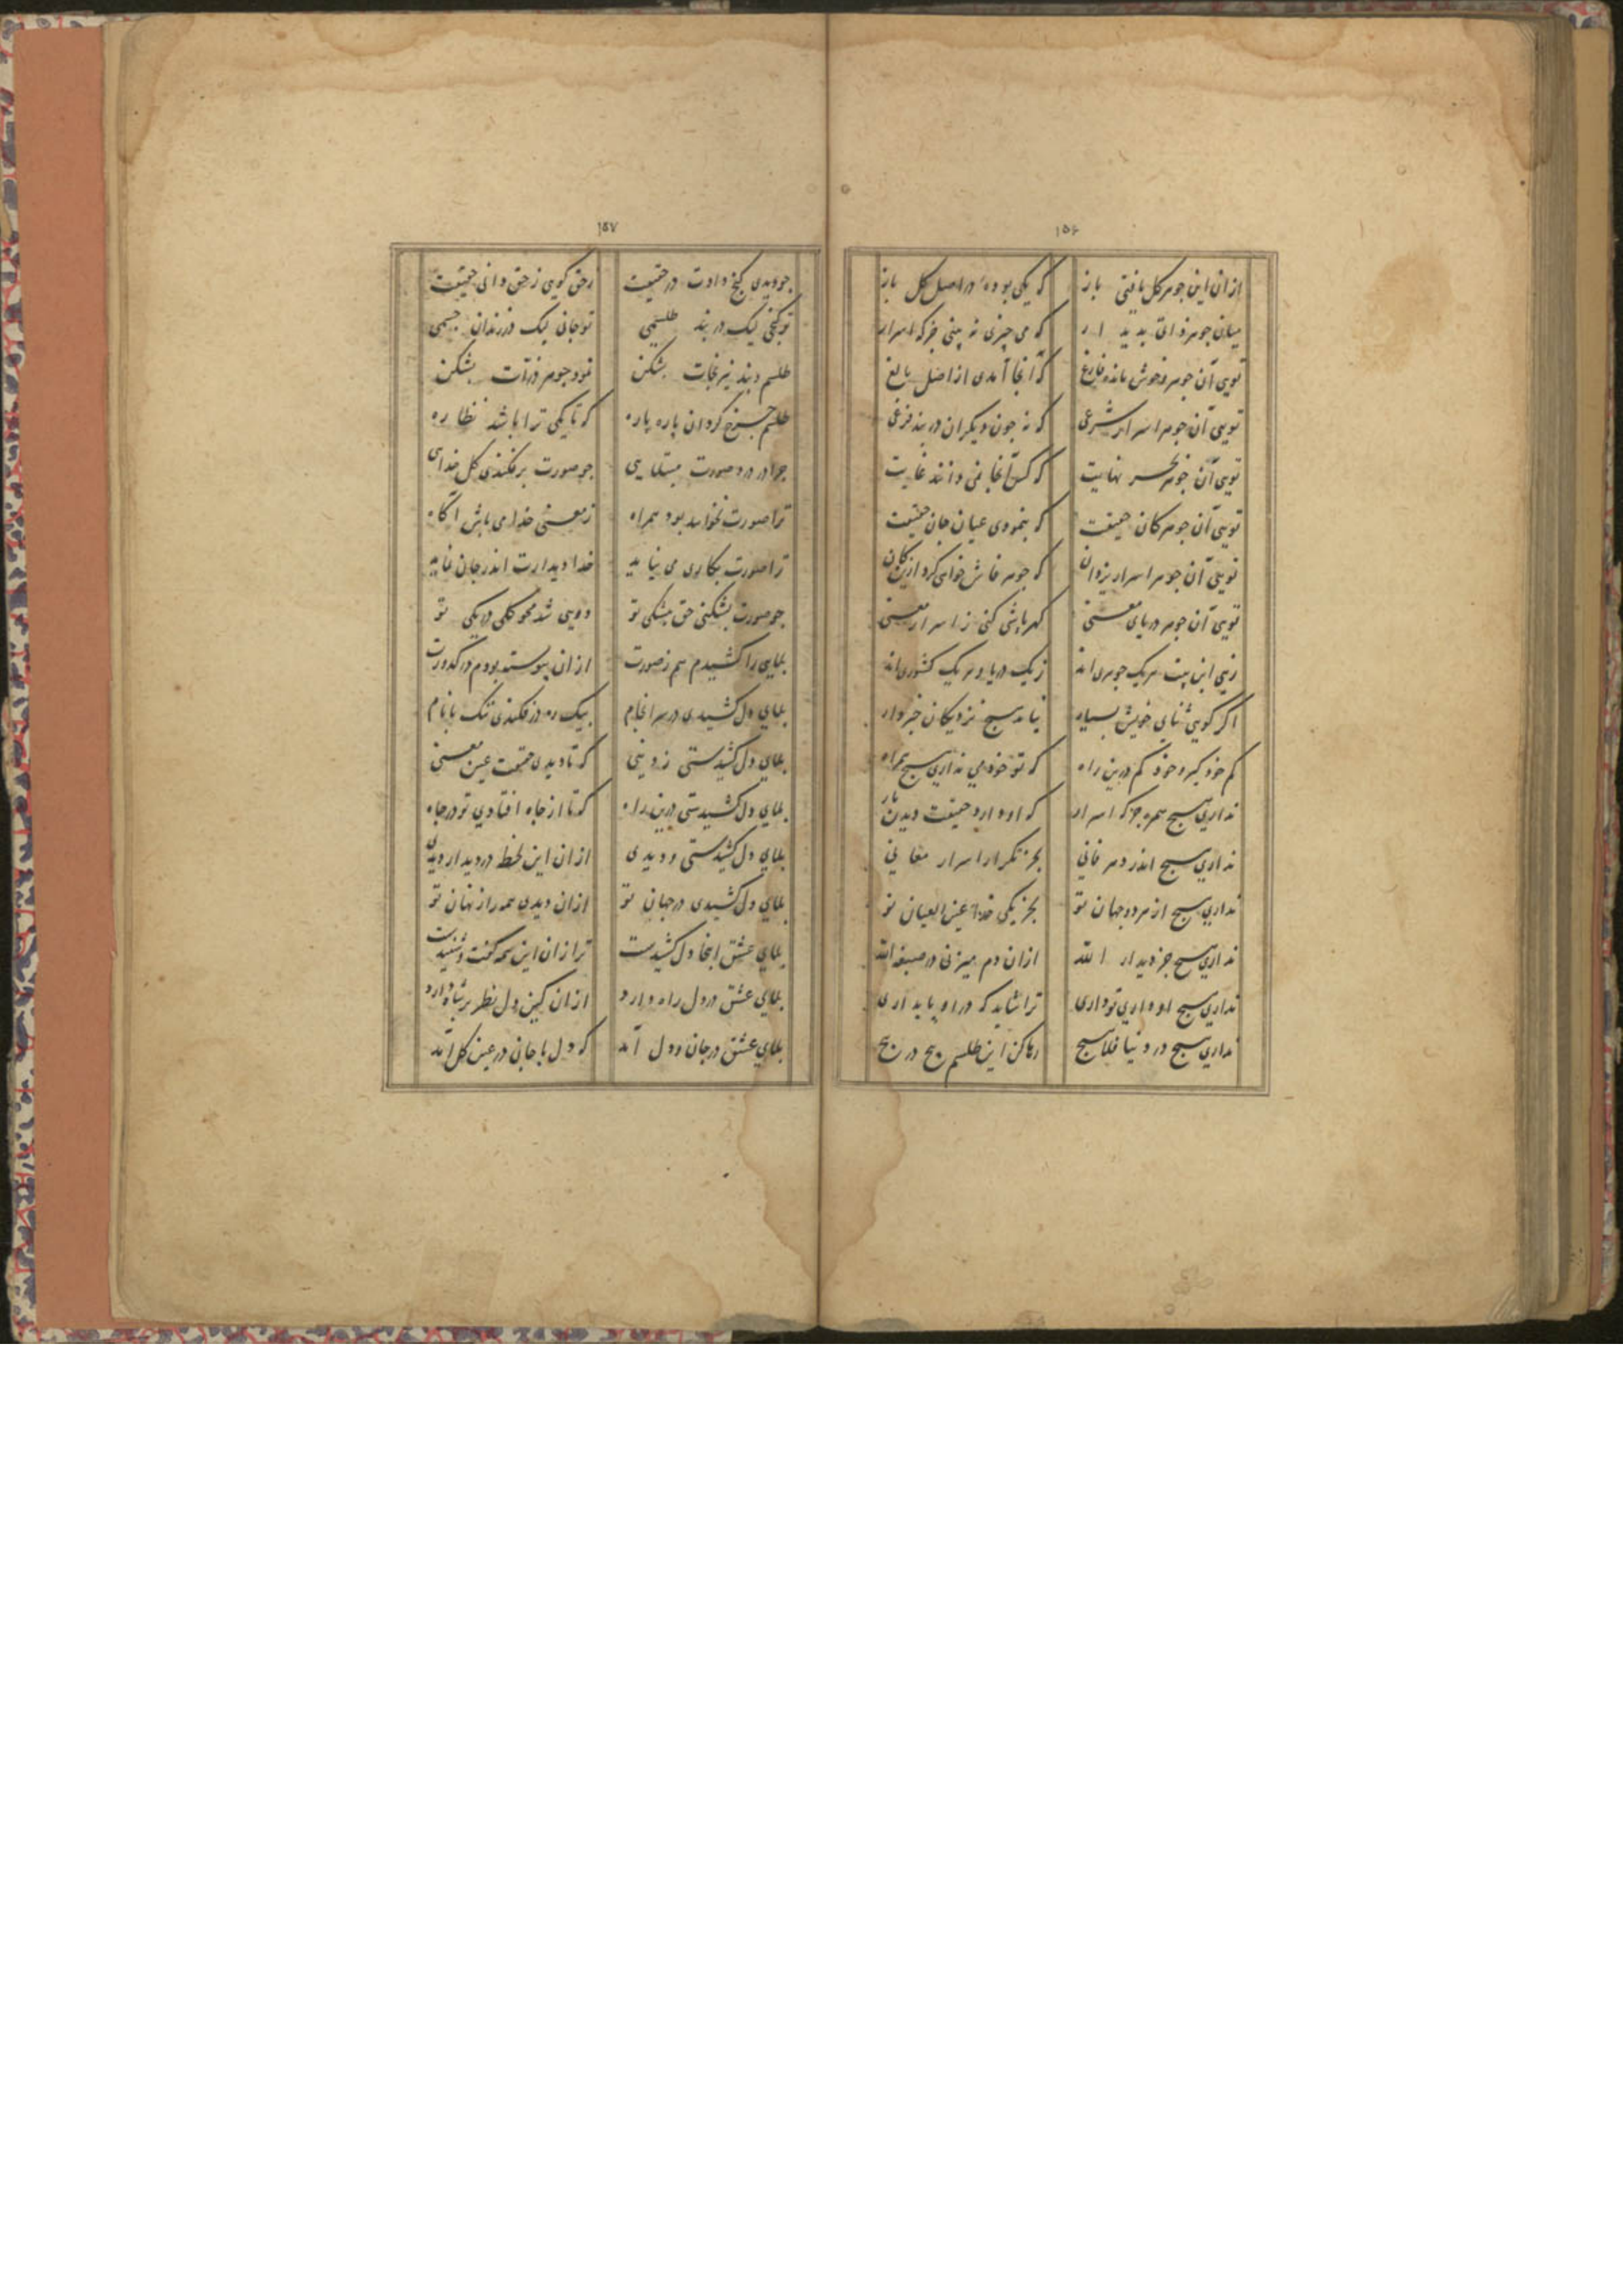 ۱۵۶
ازان این جوهر کل یافتی باز که یکی بوده در اصل کل باز
میان جوهر ذاتی پدیدار که می چیزی نه بینی جز که اسرار
تویی آن جوهر و خوش مانده فارغ که آنجا آمدی از اصل بالغ
تویی آن جوهر اسرار شرعی که نه چون دیگران در بند فرعی
تویی آن جوهر بحر نهایت که کس آنجا نمی داند غایت
تویی آن جوهر کان حقیقت که بنمودی عیان جان حقیقت
تویی آن جوهر اسرار یزدان که جوهر فاش خواهی کرد ازین کان
تویی آن جوهر دریای معنی گهر پاشی کنی ز اسرار معنی
زهی این بیت هریک جوهری اند ز یک دریا و هریک کشوری اند
اگر گویی ثنای خویش بسیار نیامد هیچ نزدیکان خبردار
کم خود گیر و خود کم درین راه که تو خود می نداری هیچ همراه
نداری هیچ همره جز که اسرار که او دارد حقیقت دیدن یار
نداری هیچ اندر دهر فانی بجز تکرار اسرار معانی
نداری هیچ از هر دو جهان تو بجز یکی خدا عین العیان تو
نداری هیچ جز دیدار الله ازان دم میزنی در صبغة الله
نداری هیچ او داری تو داری ترا شاید که در او پایداری
نداری هیچ در دنیا فلا هیچ رها کن این طلسم پیچ در پیچ
۱۵۷
چو دیدی گنج دادت در حقیقت ز حق گویی ز حق دانی حقیقت
تو گنجی لیک در بند طلسمی تو جانی لیک در زندان جسمی
طلسم و بند نیرنجات بشکن نمود جوهر ذرات بشکن
طلسم چرخ گردان پاره پاره که تا یکی ترا باشد نظاره
چرا در درد صورت مبتلایی چو صورت برفکندی کل خدایی
ترا صورت نخواهد بود همراه ز معنی خدا می باش آگاه
ترا صورت بکاری می نیاید خدا دیدارت اندر جان نماید
چو صورت بشکنی حق بیشکی تو دویی شد محو کلی در یکی تو
بلای را کشیدم هم ز صورت ازان پیوسته بودم در کدورت
بلای دل کشیدی در سرانجام بیک ره در فکندی ننک با نام
بلای دل کشیدستی ز دینی که تا دیدی حقیقت عین معنی
بلای دل کشیدستی درین راه که تا از جاه افتادی تو در چاه
بلای دل کشیدستی و دیدی ازان این لحظه در دیدار دیدی
بلای دل کشیدی در جهان تو ازان دیدی همه راز نهان تو
بلای عشق اینجا دل کشیدست ترا زان این همه گفت و شنیدست
بلای عشق در دل راه دارد ازان کین دل نظر بر شاه دارد
بلای عشق در جان و دل آمد که دل با جانی در عین کل آمد